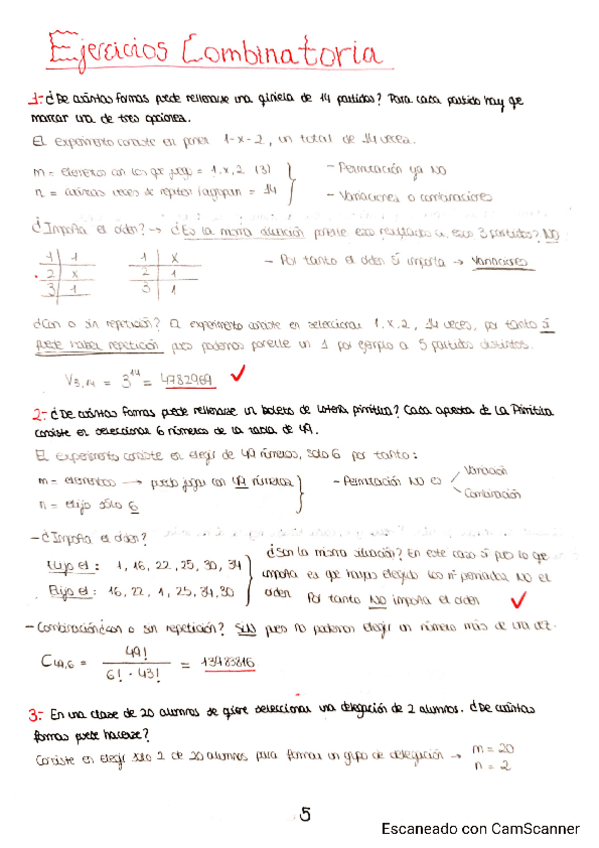 Ejercicios Combinatoria
1- ¿De cuántas formas puede rellenarse una quiniela de 14 partidos? Para cada partido hay que
marcar una de tres opciones.
El experimento consiste en poner 1-x-2, un total de 14 veces.
m = elementos con los que juego = 1, x, 2 (3)
- Permutación ya NO
n = cuántas veces se repiten/agrupan = 14
- Variaciones o combinaciones
¿Importa el orden? → ¿Es la misma situación ponerle esos resultados a esos 3 partidos? NO
1 1
2 x
3 1
1 x
2 1
3 1
- Por tanto el orden SÍ importa → Variaciones
¿Con o sin repetición? El experimento consiste en seleccionar 1, x, 2, 14 veces, por tanto sí
puede haber repetición pues podemos ponerle un 1 por ejemplo a 5 partidos distintos.
V3,14 = 3^14 = 4782969 ✓
2- ¿De cuántas formas puede rellenarse un boleto de lotería primitiva? Cada apuesta de La Primitiva
consiste en seleccionar 6 números de la tabla de 49.
El experimento consiste en elegir de 49 números, solo 6 por tanto:
m = elementos → puedo jugar con 49 números
n = elijo sólo 6
- Permutación NO
Variación
Combinación
- ¿Importa el orden?
1, 16, 22, 25, 30, 34
16, 22, 1, 25, 34, 30
¿Son la misma situación? En este caso sí pues lo que
importa es que hayas elegido los nº premiados, NO el
orden Por tanto NO importa el orden ✓
- Combinación ¿con o sin repetición? SIN pues no podemos elegir un número más de una vez.
C49,6 = 49! / 6! · 43! = 13983816
3- En una clase de 20 alumnos se quiere seleccionar una delegación de 2 alumnos. ¿De cuántas
formas puede hacerse?
Consiste en elegir solo 2 de 20 alumnos para formar un grupo de delegación → m = 20
n = 2
5
Escaneado con CamScanner